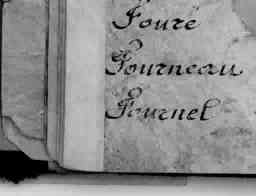 Fouré
Fourneau
Fournel